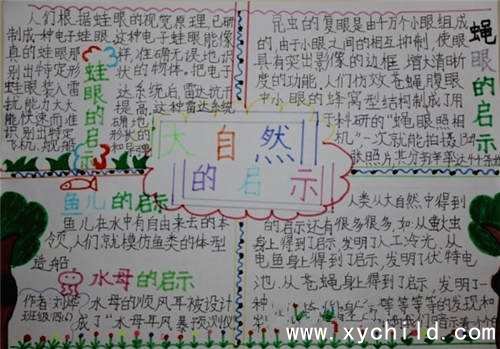 人们根据蛙眼的视觉原理,已研
制成一种电子蛙眼,这种电子蛙眼能像
真的蛙眼那样,准确无误地识
别出特定形状的物体,把电子
蛙眼装入雷达系统后,雷达抗
干扰能力大大提高,这种雷达系统
能快速而准确地
识别出特定形状的
飞机、舰船
蛙眼的启示
昆虫的复眼是由千万个小眼组成
的,由于小眼之间的相互抑制,使眼
具有突出影像的边框,增大清晰
度的功能,人们仿效苍蝇腹眼
中小眼的蜂窝型结构制成了用
于科研的“蝇眼照相
机”一次就能拍摄
张照片,其分辨率
蝇眼的启示
大自然
的启示
鱼儿的启示
鱼儿在水中有自由来去的本
领,人们就模仿鱼类的体型
造船
水母的启示
作者
班级
水母的顺风耳被设计
成了“水母耳风暴预测仪”
人类从大自然中得到
的启示还有很多很多,如:从萤火虫
身上得到了启示,发明了人工冷光、从
电鱼身上得到了启示,发明了伏特电
池、从苍蝇身上得到了启示,发明了一
种
等等等等的发现和
www.xychild.com